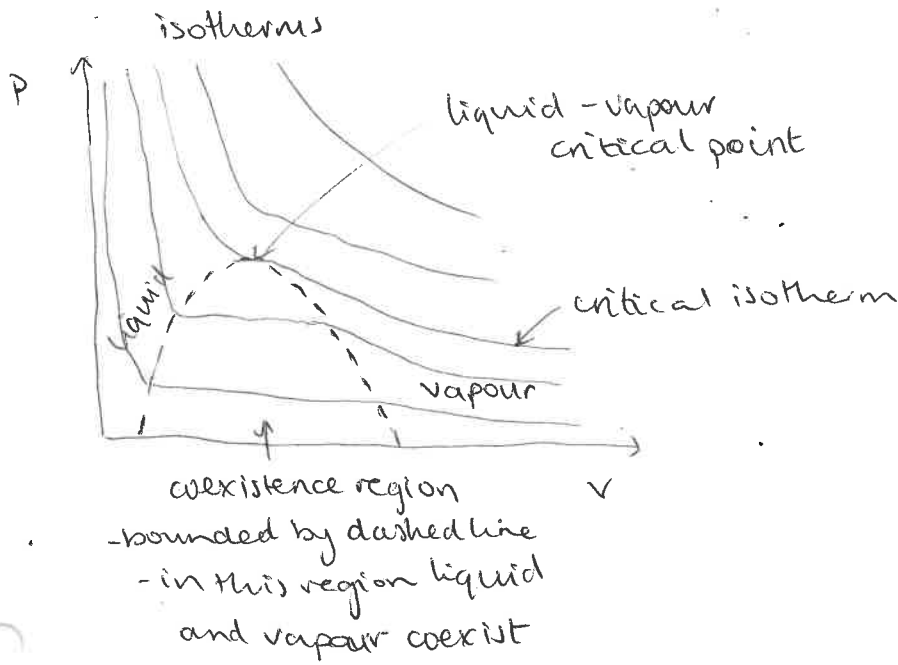 isotherms
P
liquid - vapour
critical point
liquid
critical isotherm
vapour
V
coexistence region
-bounded by dashed line
- in this region liquid
and vapour coexist